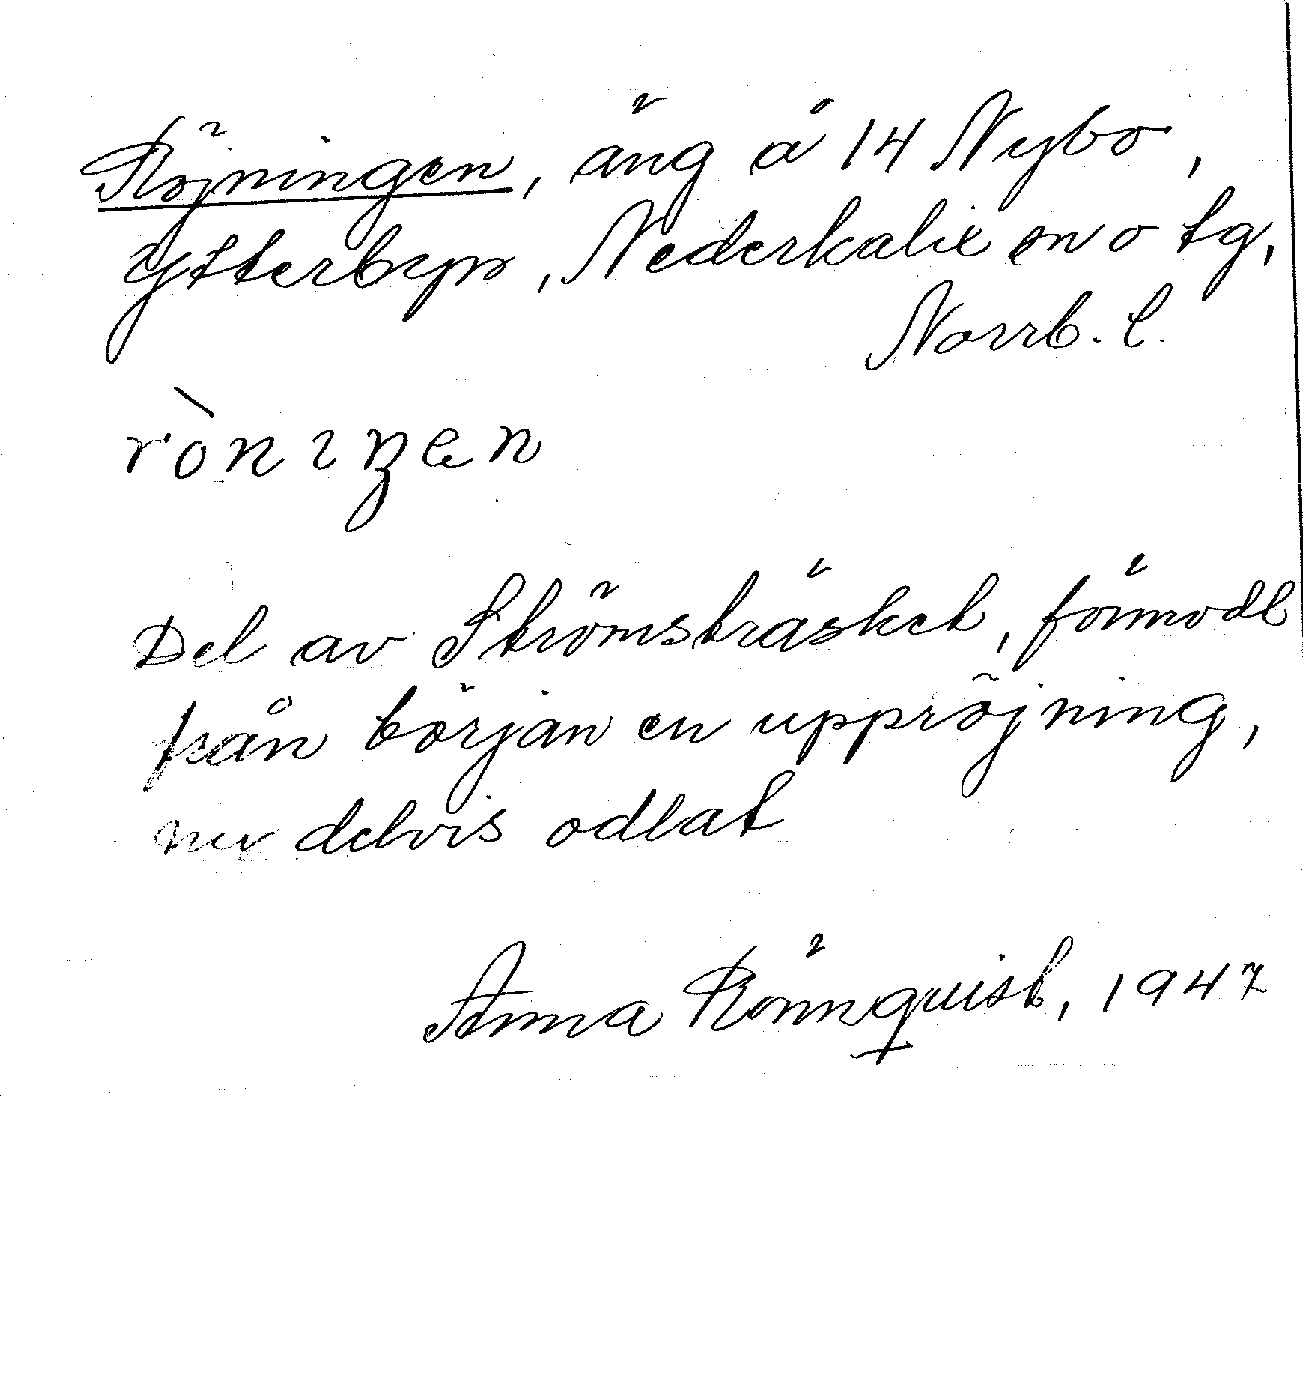 Röjningen, äng å 14 Nybo,
Ytterbyn, Nederkalix sn o tg,
Norrb. l.
ròniŋen
Del av Strömsträsket, förmodl
från början en uppröjning,
nu delvis odlat
Anna Rönnquist, 1947